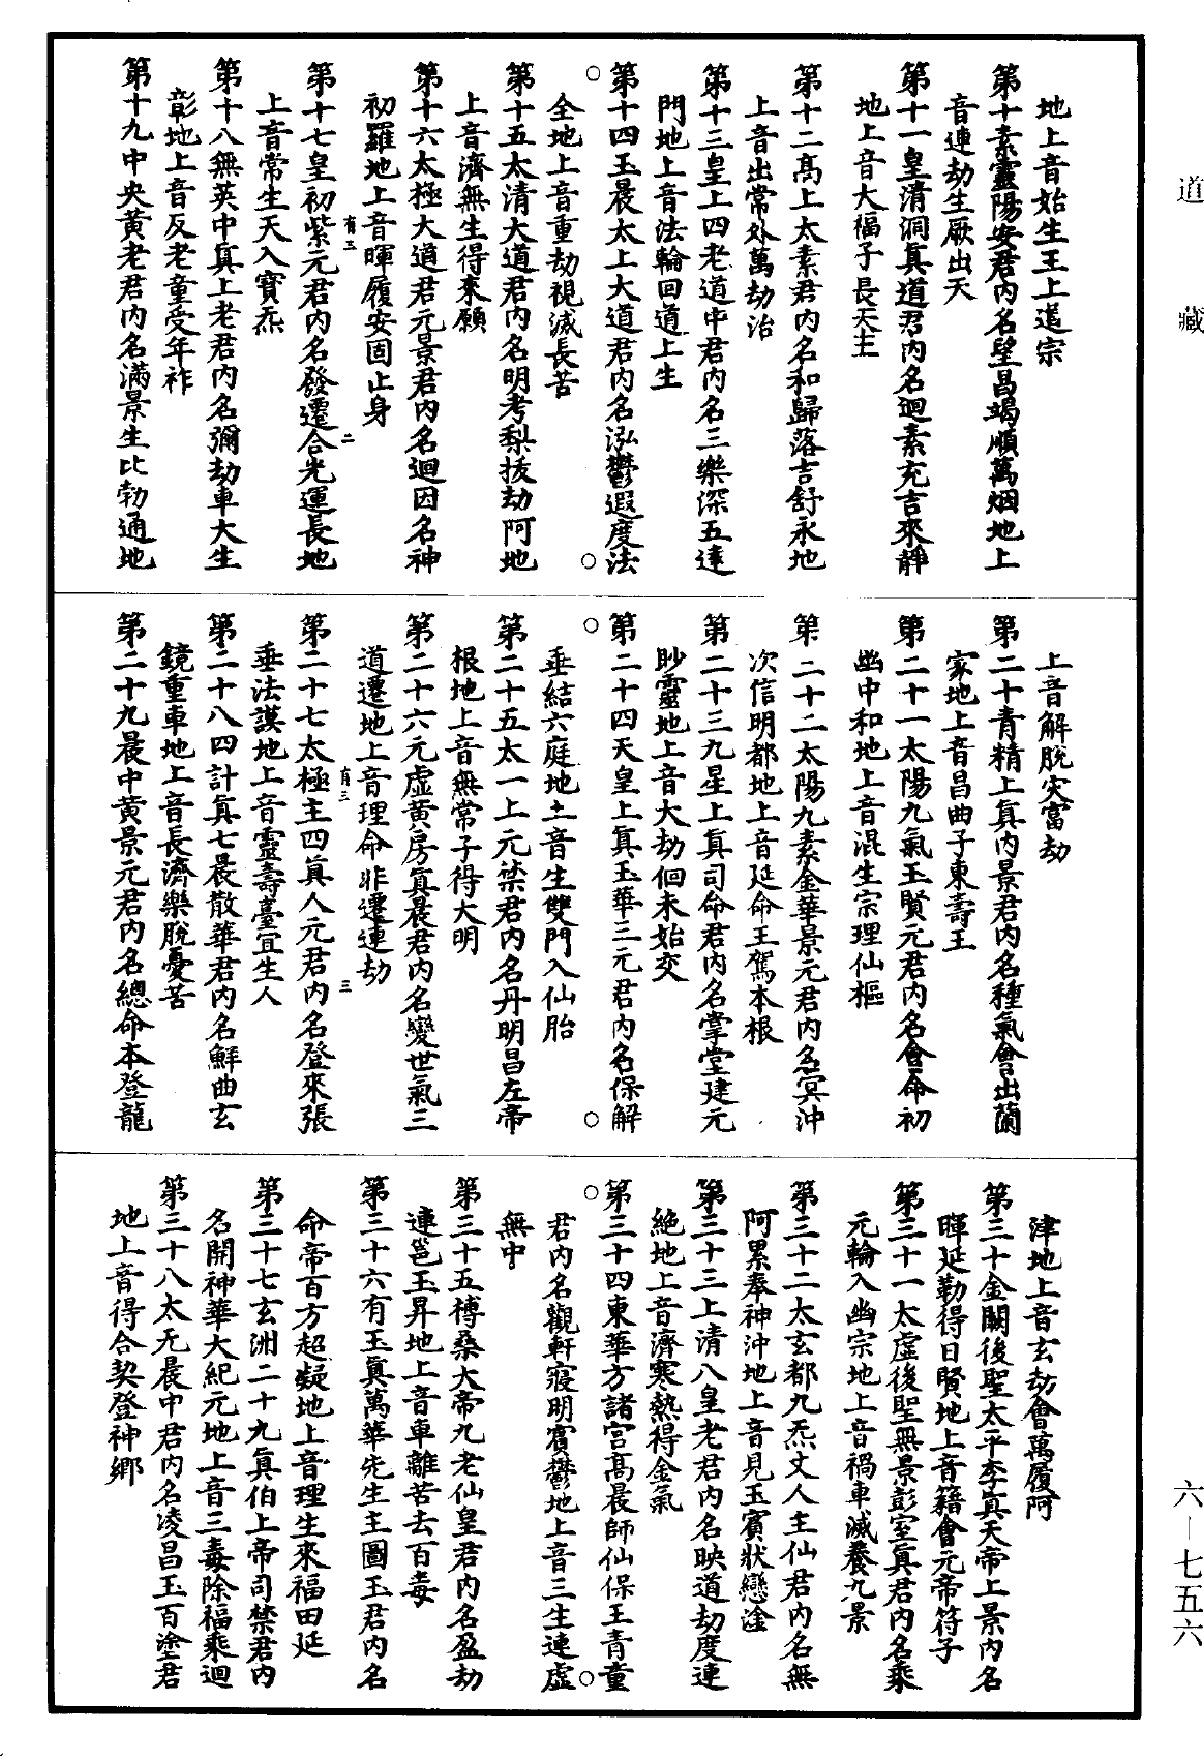 道藏
地上音始生王上道宗
第十素靈陽安君內名堅昌竭順萬烟地上
音連劫生厭出天
第十一皇清洞真道君內名迴素充吉來靜
地上音大福子長天主
第十二髙上太素君內名和歸落吉舒永地
上音出常外萬劫治
第十三皇上四老道中君內名三樂深五達
門地上音法輪回道上生
第十四玉晨太上大道君內名泓鬱遐度法
全地上音重劫視滅長苦
第十五太清大道君內名明考梨拔劫阿地
上音濟無生得來願
第十六太極大道君元景君內名迴因名神
初羅地上音暉履安固止身
有三
二
第十七皇初紫元君內名發遷合光運長地
上音常生天入寶炁
第十八無英中真上老君內名彌劫車大生
彰地上音反老童受年祚
第十九中央黃老君內名滿景生比勃通地
上音解脫灾富劫
第二十青精上真內景君內名種氣會出蘭
家地上音昌曲子東壽王
第二十一太陽九氣玉賢元君內名會命初
幽中和地上音混生宗理仙樞
第二十二太陽九素金華景元君內名冥沖
次信明都地上音延命王駕本根
第二十三九星上真司命君內名掌堂建元
眇靈地上音大劫佪未始交
第二十四天皇上真玉華三元君內名保解
垂結六庭地土音生雙門入仙胎
第二十五太一上元禁君內名丹明昌左帝
根地上音無常子得大明
第二十六元虛黃房真晨君內名變世氣三
道遷地上音理命非遷連劫
有三
三
第二十七太極主四真人元君內名登來張
垂法謨地上音靈壽臺宜生人
第二十八四計真七晨散華君內名鮮曲玄
鏡重車地上音長濟樂脫憂苦
第二十九晨中黃景元君內名總命本登龍
津地上音玄劫會萬履阿
第三十金闕後聖太平李真天帝上景內名
暉延勤得日賢地上音籍會元帝符子
第三十一太虛後聖無景彭室真君內名乘
元輪入幽宗地上音禍車滅養九景
第三十二太玄都九炁丈人主仙君內名無
阿累奉神沖地上音見玉賓狀戀淦
第三十三上清八皇老君內名映道劫度連
絕地上音濟寒熱得金氣
第三十四東華方諸宮髙晨師仙保王青童
君內名觀軒寢明賓鬱地上音三生連虛
無中
第三十五榑桑大帝九老仙皇君內名盈劫
連邕玉昇地上音車離苦去百毒
第三十六有玉真萬華先生主圖玉君內名
命帝百方超凝地上音理生來福田延
第三十七玄洲二十九真伯上帝司禁君內
名開神華大紀元地上音三毒除福乘迴
第三十八太无晨中君內名凌昌玉百塗君
地上音得合契登神鄉
六—七五六